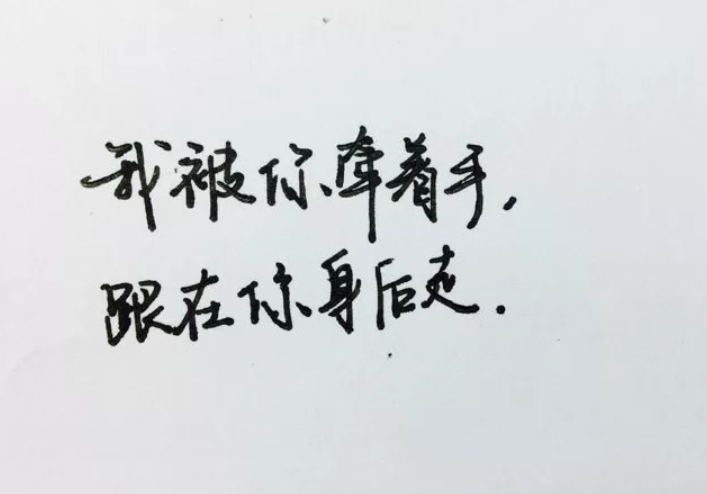 我被你牵着手,
跟在你身后走.